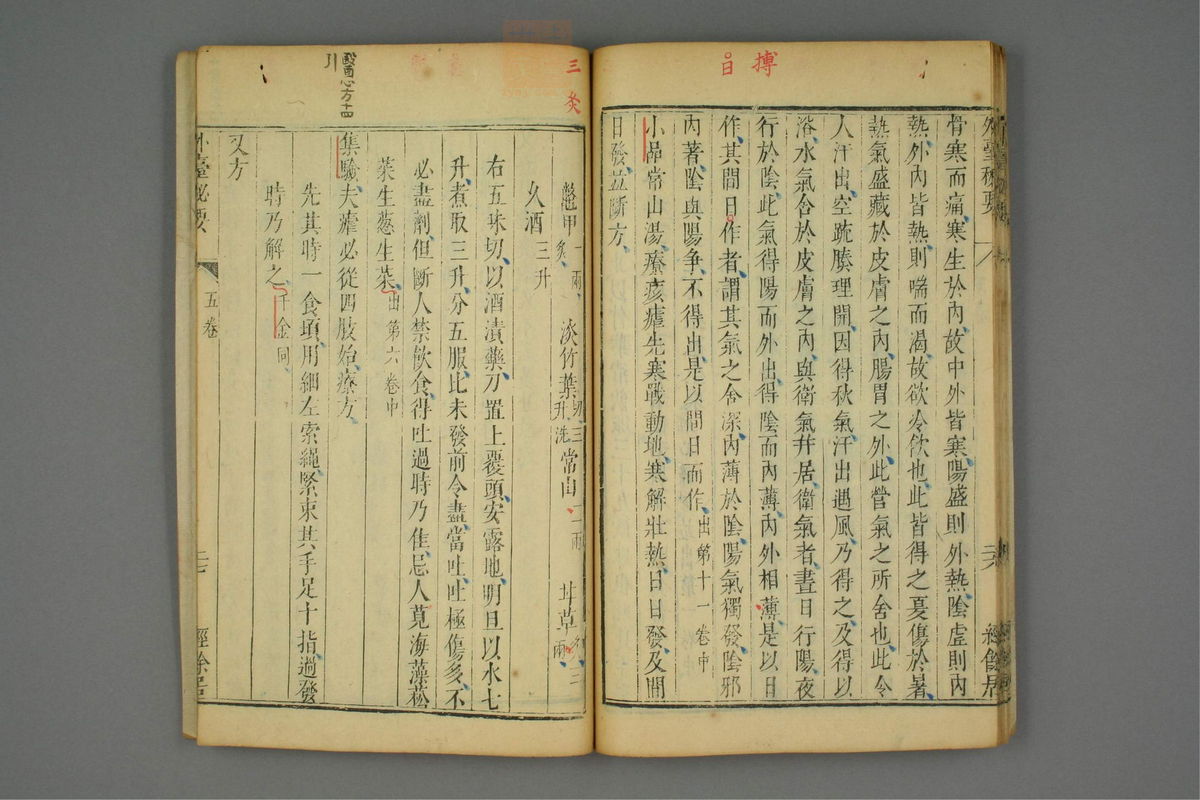 搏
日
外臺秘要
骨寒而痛寒生於內故中外皆寒陽盛則外熱陰虛則內
熱外內皆熱則喘而渴故欲冷飲也此皆得之夏傷於暑
熱氣盛藏於皮膚之內腸胃之外此營氣之所舍也此令
人汗出空疏腠理開因得秋氣汗出遇風乃得之及得以
浴水氣舍於皮膚之內與衛氣并居衛氣者晝日行陽夜
行於陰此氣得陽而外出得陰而內薄內外相薄是以日
作其間日作者謂其氣之舍深內薄於陰陽氣獨發陰邪
內著陰與陽爭不得出是以間日而作出第十一卷中
小品常山湯療痎瘧先寒戰動地寒解壯熱日日發及間
日發並斷方
三 炙
鼈甲一兩炙 淡竹葉切三升洗 常山三兩 甘草三兩炙
久酒三升
右五味切以酒漬藥刀置上覆頭安露地明旦以水七
升煮取三升分五服比未發前令盡當吐吐極傷多不
必盡劑但斷人禁飲食得吐過時乃佳忌人莧海藻菘
菜生葱生菜出第六卷中
醫心方十四
引
集驗夫瘧必從四肢始療方
先其時一食頃用細左索繩緊束其手足十指過發
時乃解之千金同
又方
外臺秘要
五卷
經餘居